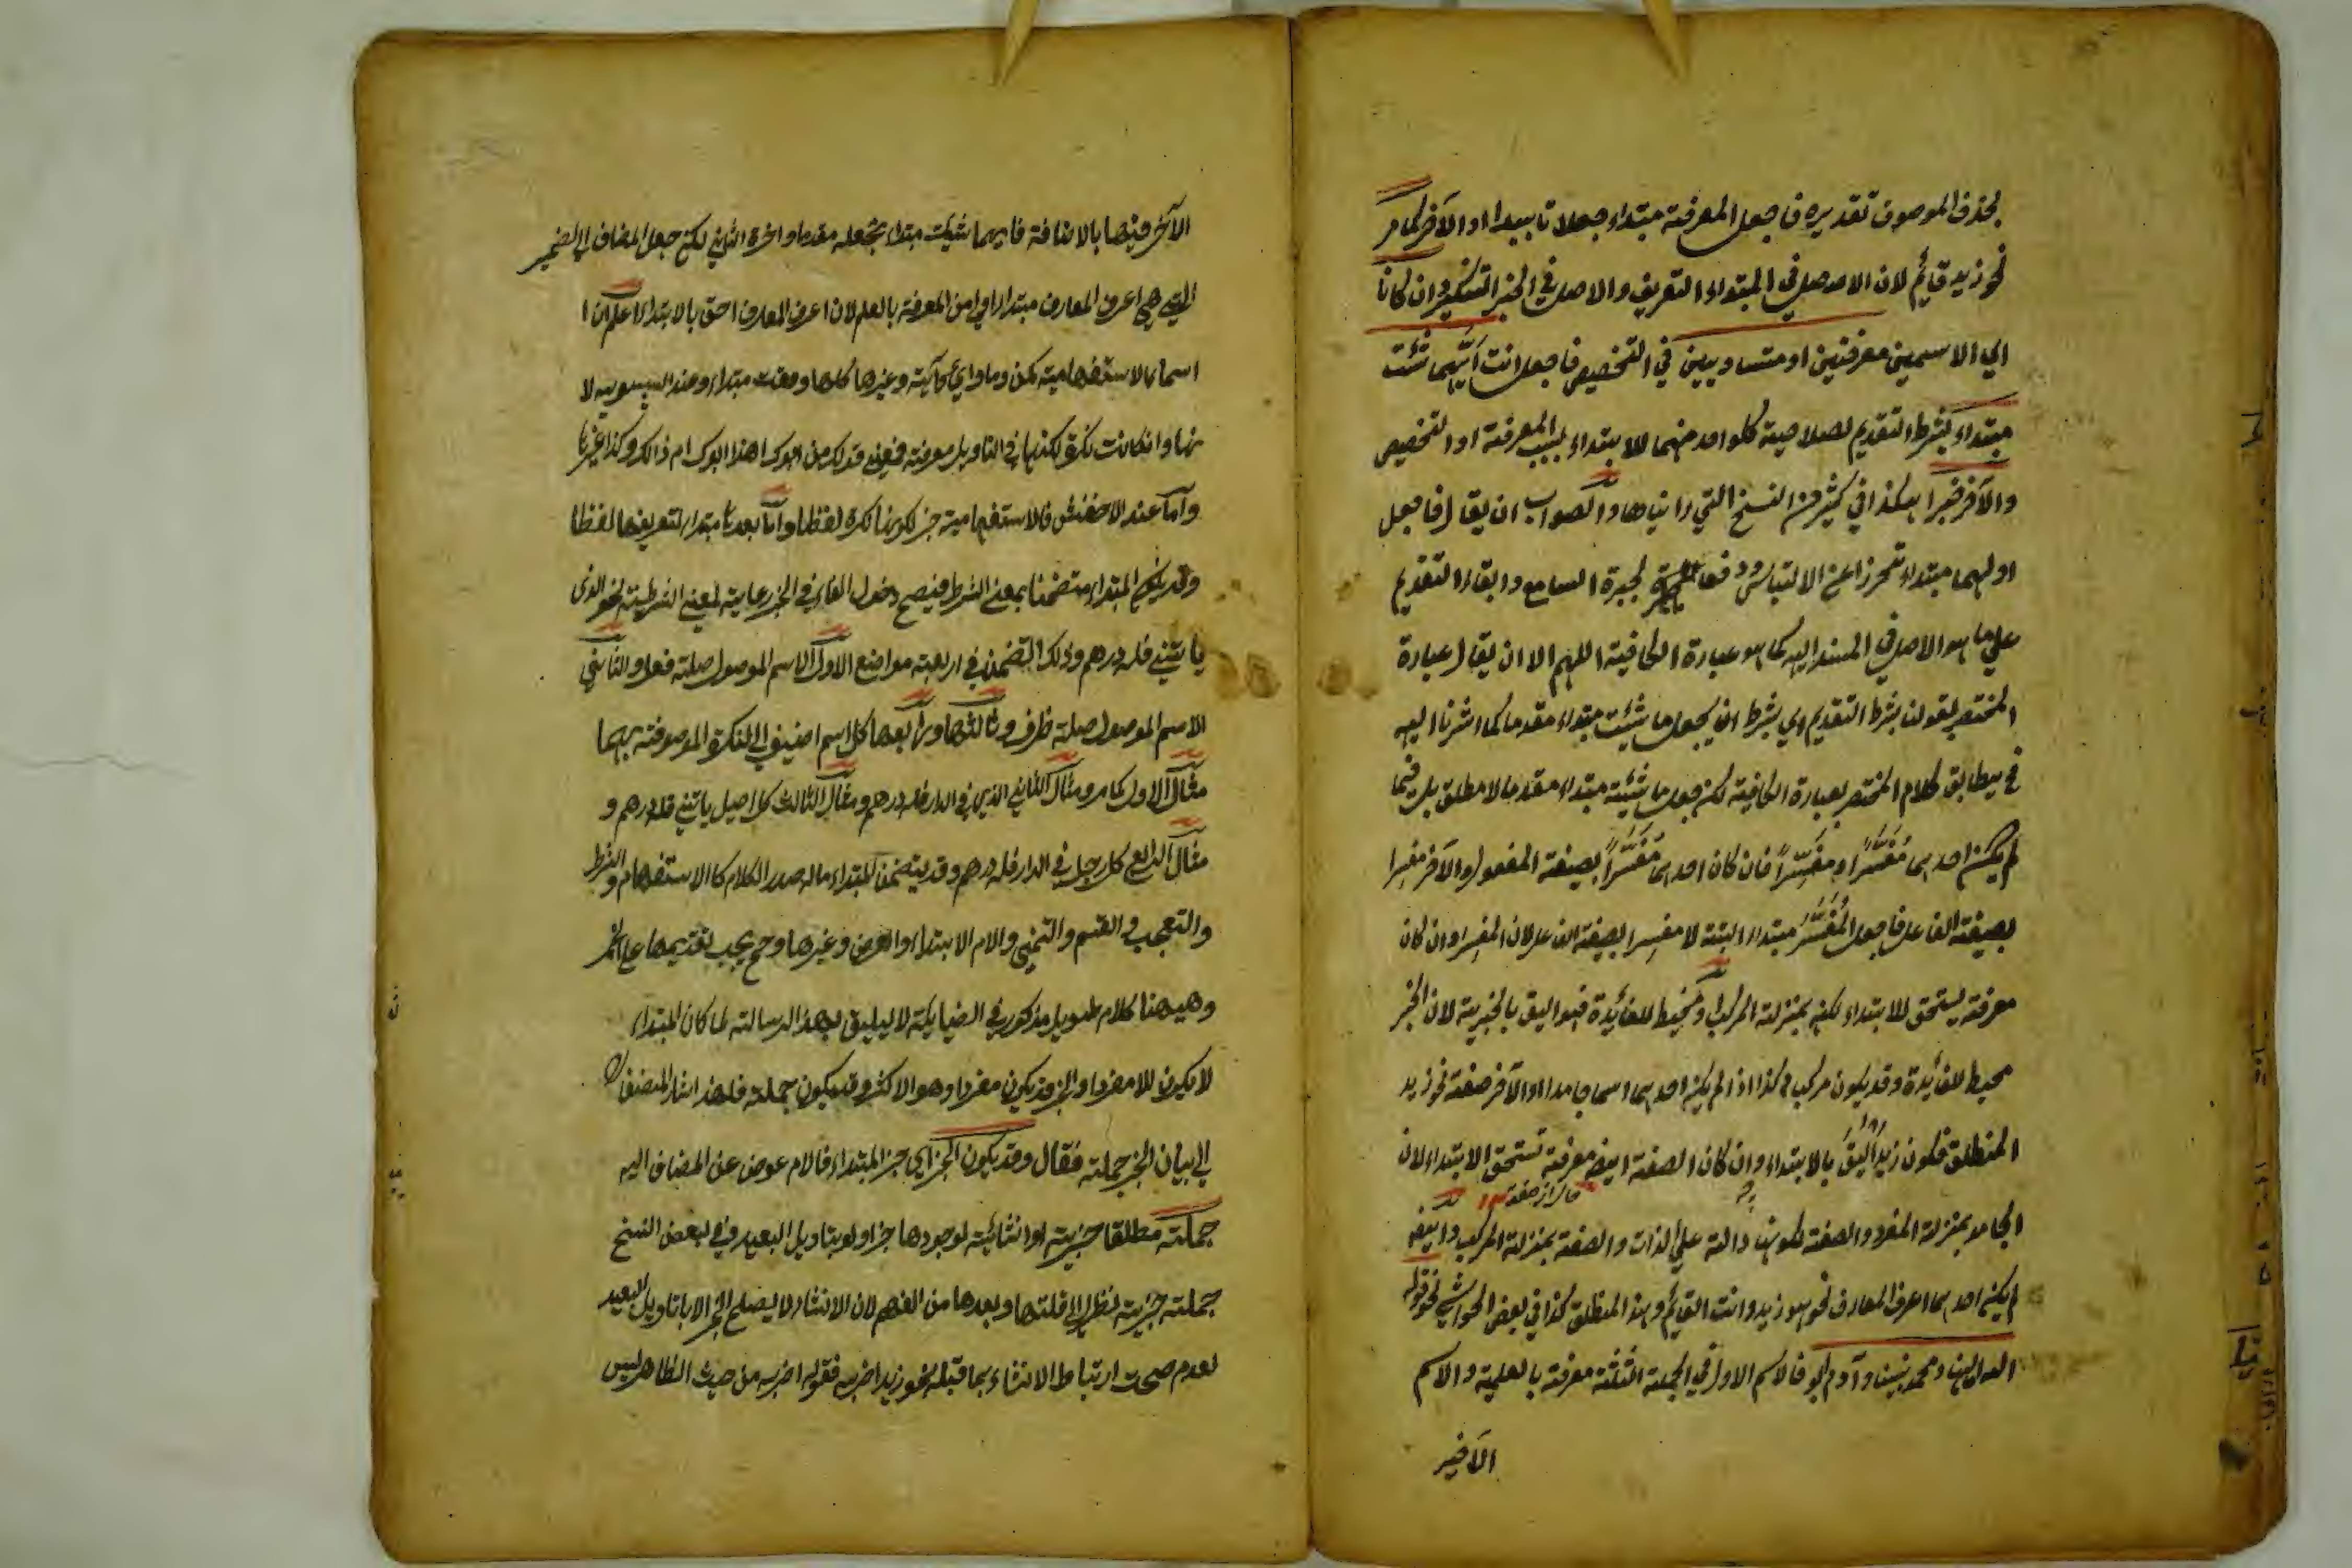 بحذف الموصوف تقديره فاجعل المعرفة مبتداء جعلا تابيدا او الآخر كما مر
نحو زيد قائم لان الاصل في المبتداء التعريف والاصل في الخبر التنكير وان كانا
اي الاسمين معرفتين او متساويين في التخصيص فاجعل انت ايّهما شئت
مبتداء بشرط التقديم لصلاحية كلواحد منهما للابتداء لسبب المعرفة او التخصيص
والآخر خبرا هكذا في كثير من النسخ التي رايناها والصواب ان يقال فاجعل
اولهما مبتداء تحرزا عن الالتباس ودفعا لحيرة السامع وابقاء التقديم
علي ما هو الاصل في المسند اليه كما هو عبارة الكافية اللهم الا ان يقال عبارة
المختصر لقولنا بشرط التقديم اي بشرط ان يجعل ما شئت مبتداء مقدما كما اشرنا اليه
فح يطابق كلام المختصر لعبارة الكافية لكن جعل ما شئته مبتداء مقدما لا مطلق بل فيما
لم يكن احدهما مُفَسَّرًا او مفَسِّرًا فان كان احدهما مُفَسَّرًا بصيغة المفعول والآخر مفسرا
بصيغة الفاعل فاجعل المُفَسَّر مبتداء البتة لا مفسرا بصيغة الفاعل لان المفسر وان كان
معرفة يستحق للابتداء لكنه بمنزلة المركب ومحيط للفائدة فهو اليق بالخبرية لان الخبر
محيط للفائدة وقد يكون مركب وكذا اذا لم يكن احدهما اسما جامدا والآخر صفة نحو زيد
المنطلق فكون زيد اَلْيَقُ بالابتداء وان كان الصفة ايضا معرفة تستحق الابتداء لان
الجامد بمنزلة المفرد والصفة لكونها دالة علي الذات والصفة بمنزلة المركب وايضا
لم يكن احدهما اعرف المعارف نحو هو زيد وانت القائم وهذا المنطلق كذا في بعض الحواشي نحو قوله
الله الهنا ومحمد نبينا وآدم ابو فالاسم الاول في الجملة الثلثة معرفة بالعلمية والاسم
الآخير
الآخر فيها بالاضافة فايهما شئت مبتداء تجعله مقدما واخره الثاني لكن جعل المضاف الي الضمير
التي هي اعرف المعارف مبتداء اولي من المعرفة بالعلم لان اعرف المعارف احق بالابتداء اعلم ان ا
اسماء الاستفهامية كمن وما واي كآيته وغيرها كلها وقعت مبتداء وعند السيبويه لا
نها وانكانت نكرة لكنها في التاويل معرفة فيعني قولك من ابوك اهذا ابوك ام ذالك وكذا غيرها
وآما عند الاخفش فالاستفهامية خبر لكونها نكرة لفظا وآما بعدها مبتداء لتعريفها لفظا
وقد يكون المبتداء متضمنا بمعني الشرط فيصح دخول الفاء في الخبر رعاية لمعني الشرطية نحو الذي
ياتيني فله درهم وذلك التضمن في اربعة مواضع الاول الاسم الموصول صلته فعل والثاني
الاسم الموصول صلته ظرف وثالثها ورابعها كل اسم اضيف الي النكرة الموصوفة بهما
مثال الاول كما مر ومثال الثاني الذي في الدار فله درهم ومثال الثالث كل رجل ياتيني فله درهم و
مثال الرابع كل رجل في الدار فله درهم وقد يتضمن المبتداء ماله صدر الكلام كالاستفهام والشرط
والتعجب والقسم والتمني والام الابتداء والعرض وغيرها وح يجب تقديمها علي الخبر
وهيهنا كلام طويل مذكور في الضيايئة لا يليق بهذ الرسالة لما كان المبتداء
لا يكون الا مفردا والخبر قد يكون مفردا وهو الاكثر وقد يكون جملة فلهذا اشار المصنف
الي بيان الخبر جملة فقال وقد يكون الخبر اي خبر المبتداء فالام عوض عن المضاف اليه
جملة مطلقا خبرية او انشائية لوجودها خبرا ولو بتاويل البعيد وفي بعض النسخ
جملة خبرية نظرا الي قلتها وبعدها من الفهم لان الانشاء لا يصلح الخبر الا بتاويل البعيد
لعدم صحت ارتباط الانشاء بما قبله نحو زيد اضربه فقوله اضربه من حيث الظاهر ليس